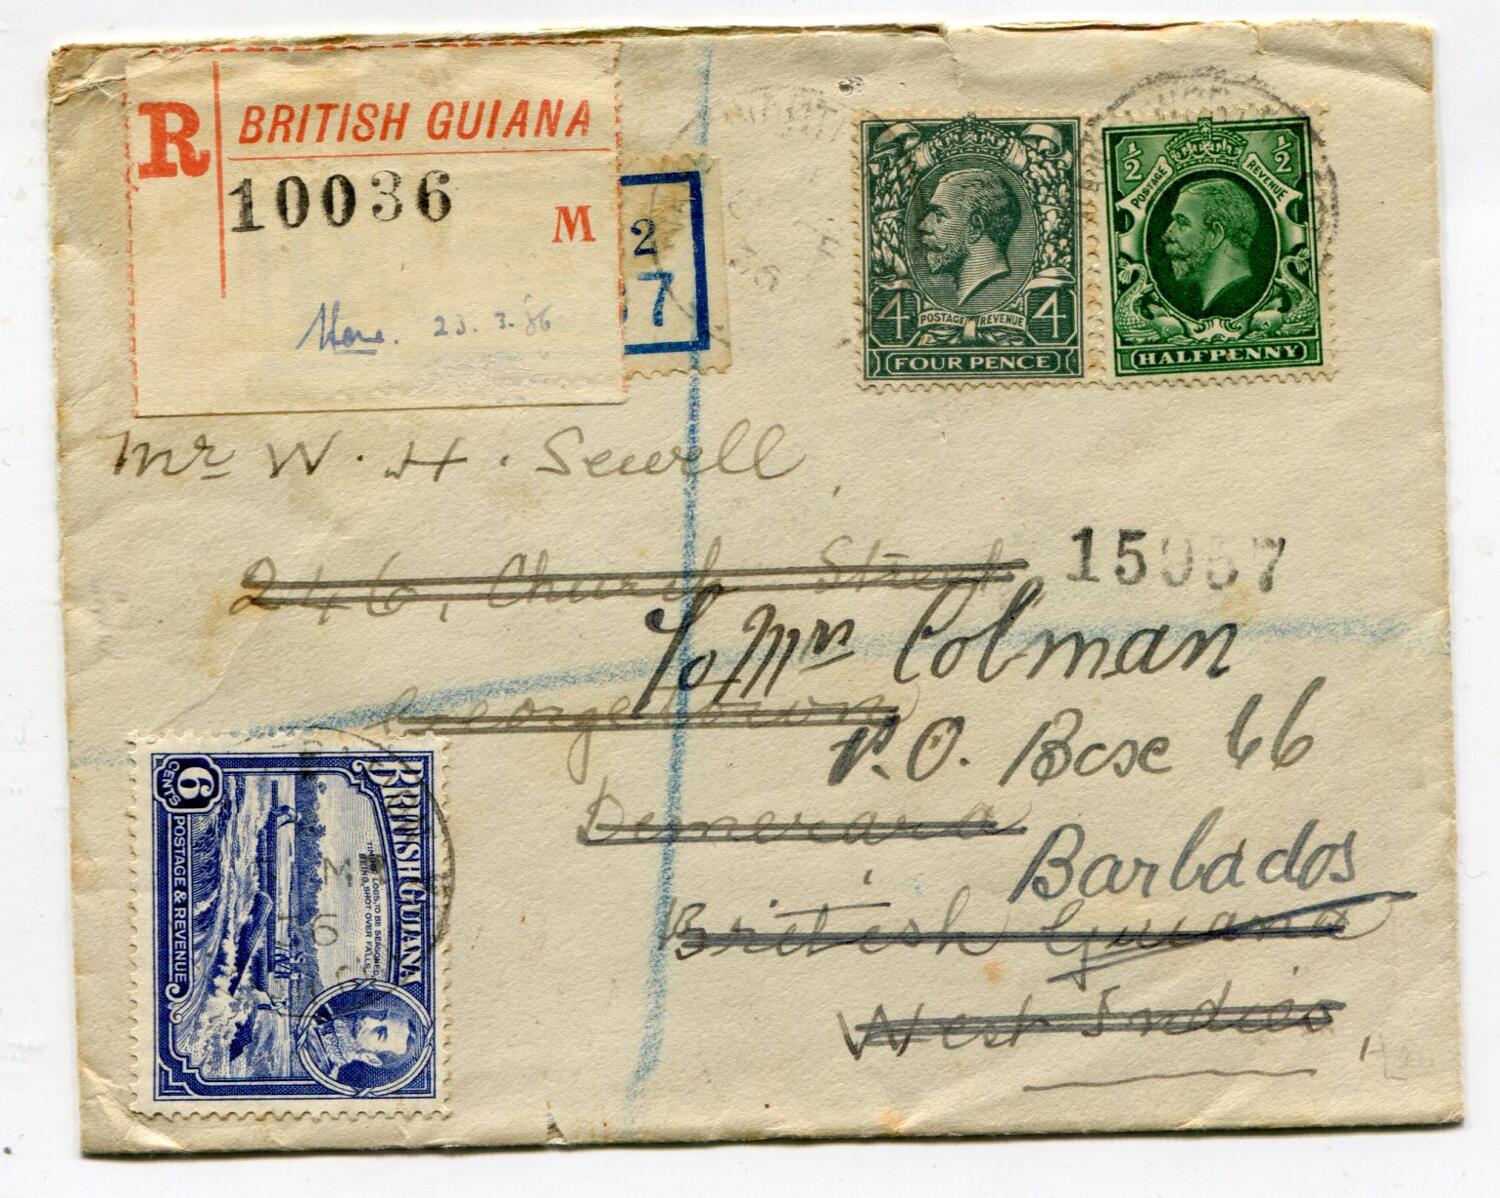 R BRITISH GUIANA
10036
M
2
7
23.3.36
4 4
POSTAGE REVENUE
FOUR PENCE
½ ½
POSTAGE REVENUE
HALFPENNY
Mr W. H. Sewell
246, Church Street
15037
To Mrs Colman
Georgetown
P.O. Box 66
Demerara
Barbados
British Guiana
West Indies
BRITISH GUIANA
6 CENTS
POSTAGE & REVENUE
BEING SHOT OVER FALLS